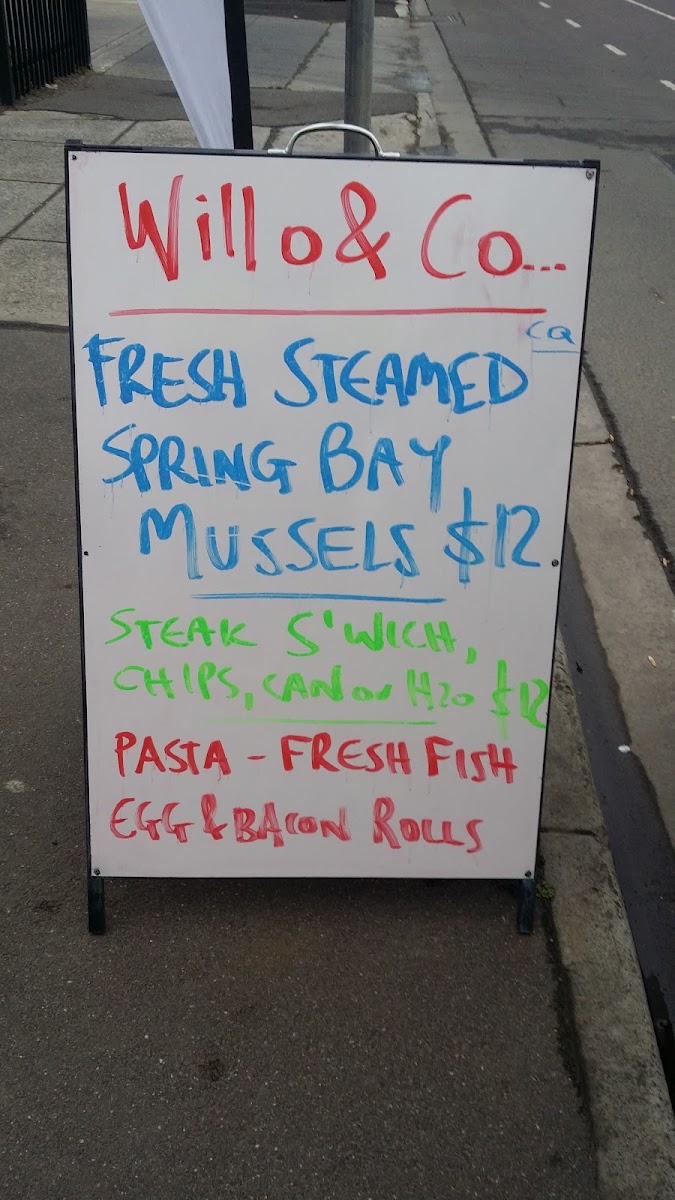 Willo & Co...
CQ
FRESH STEAMED
SPRING BAY
MUSSELS $12
STEAK S'WICH,
CHIPS, CAN or H2o $12
PASTA - FRESH FISH
EGG & BACON ROLLS